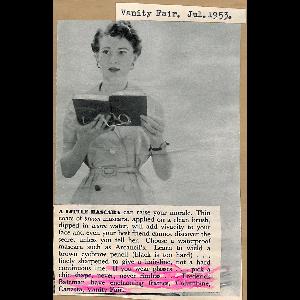 Vanity Fair. Jul.1953.
A LITTLE MASCARA can raise your morale. Thin
coat of brown mascara, applied on a clean brush,
dipped in warm water, will add vivacity to your
face and even your best friend cannot discover the
secret, unless you tell her. Choose a waterproof
mascara such as Arcancil's. Learn to wield a
brown eyebrow pencil (black is too hard) . . .
finely sharpened to give a hairline, not a hard
continuous line. If you wear glasses . . . pick a
chic shape, never, never rimless . . . Frederick
Bateman have enchanting frames, Columbine,
Canasta, Vanity Fair.